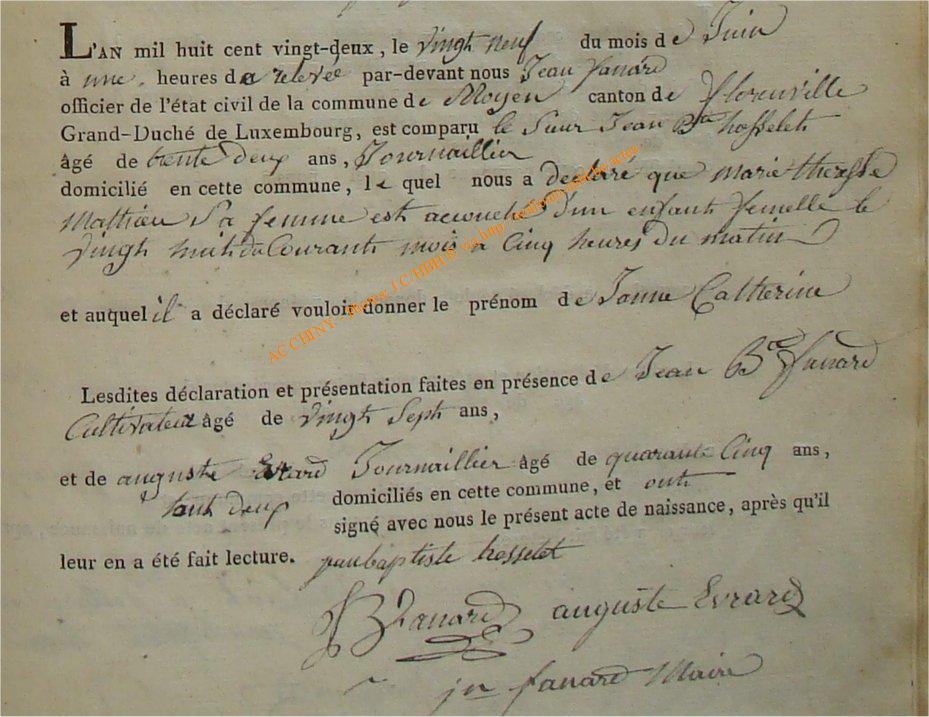 L'AN mil huit cent vingt-deux, le vingt neuf du mois de Juin
à une heures de relevée par-devant nous Jean fanard
officier de l'état civil de la commune de Moyen canton de florenville
Grand-Duché de Luxembourg, est comparu le Sieur Jean Bte hosselet
âgé de trente deux ans, Journaillier
domicilié en cette commune, le quel nous a declaré que marie therese
Mathieu Sa femme est accouché d'un enfant femelle le
vingt huit du Courant mois a Cinq heures du matin
et auquel il a déclaré vouloir donner le prénom de Janne Catherine
AC CHINY - photos J.C HIBLE via http
Lesdites déclaration et présentation faites en présence de Jean Bte fanard
Cultivateur âgé de vingt Sept ans,
et de auguste Evrard Journaillier âgé de quarante Cinq ans,
tout deux domiciliés en cette commune, et ont
signé avec nous le présent acte de naissance, après qu'il
leur en a été fait lecture. jeanbaptiste hosselet
JB fanard auguste Evrard
jn fanard Maire